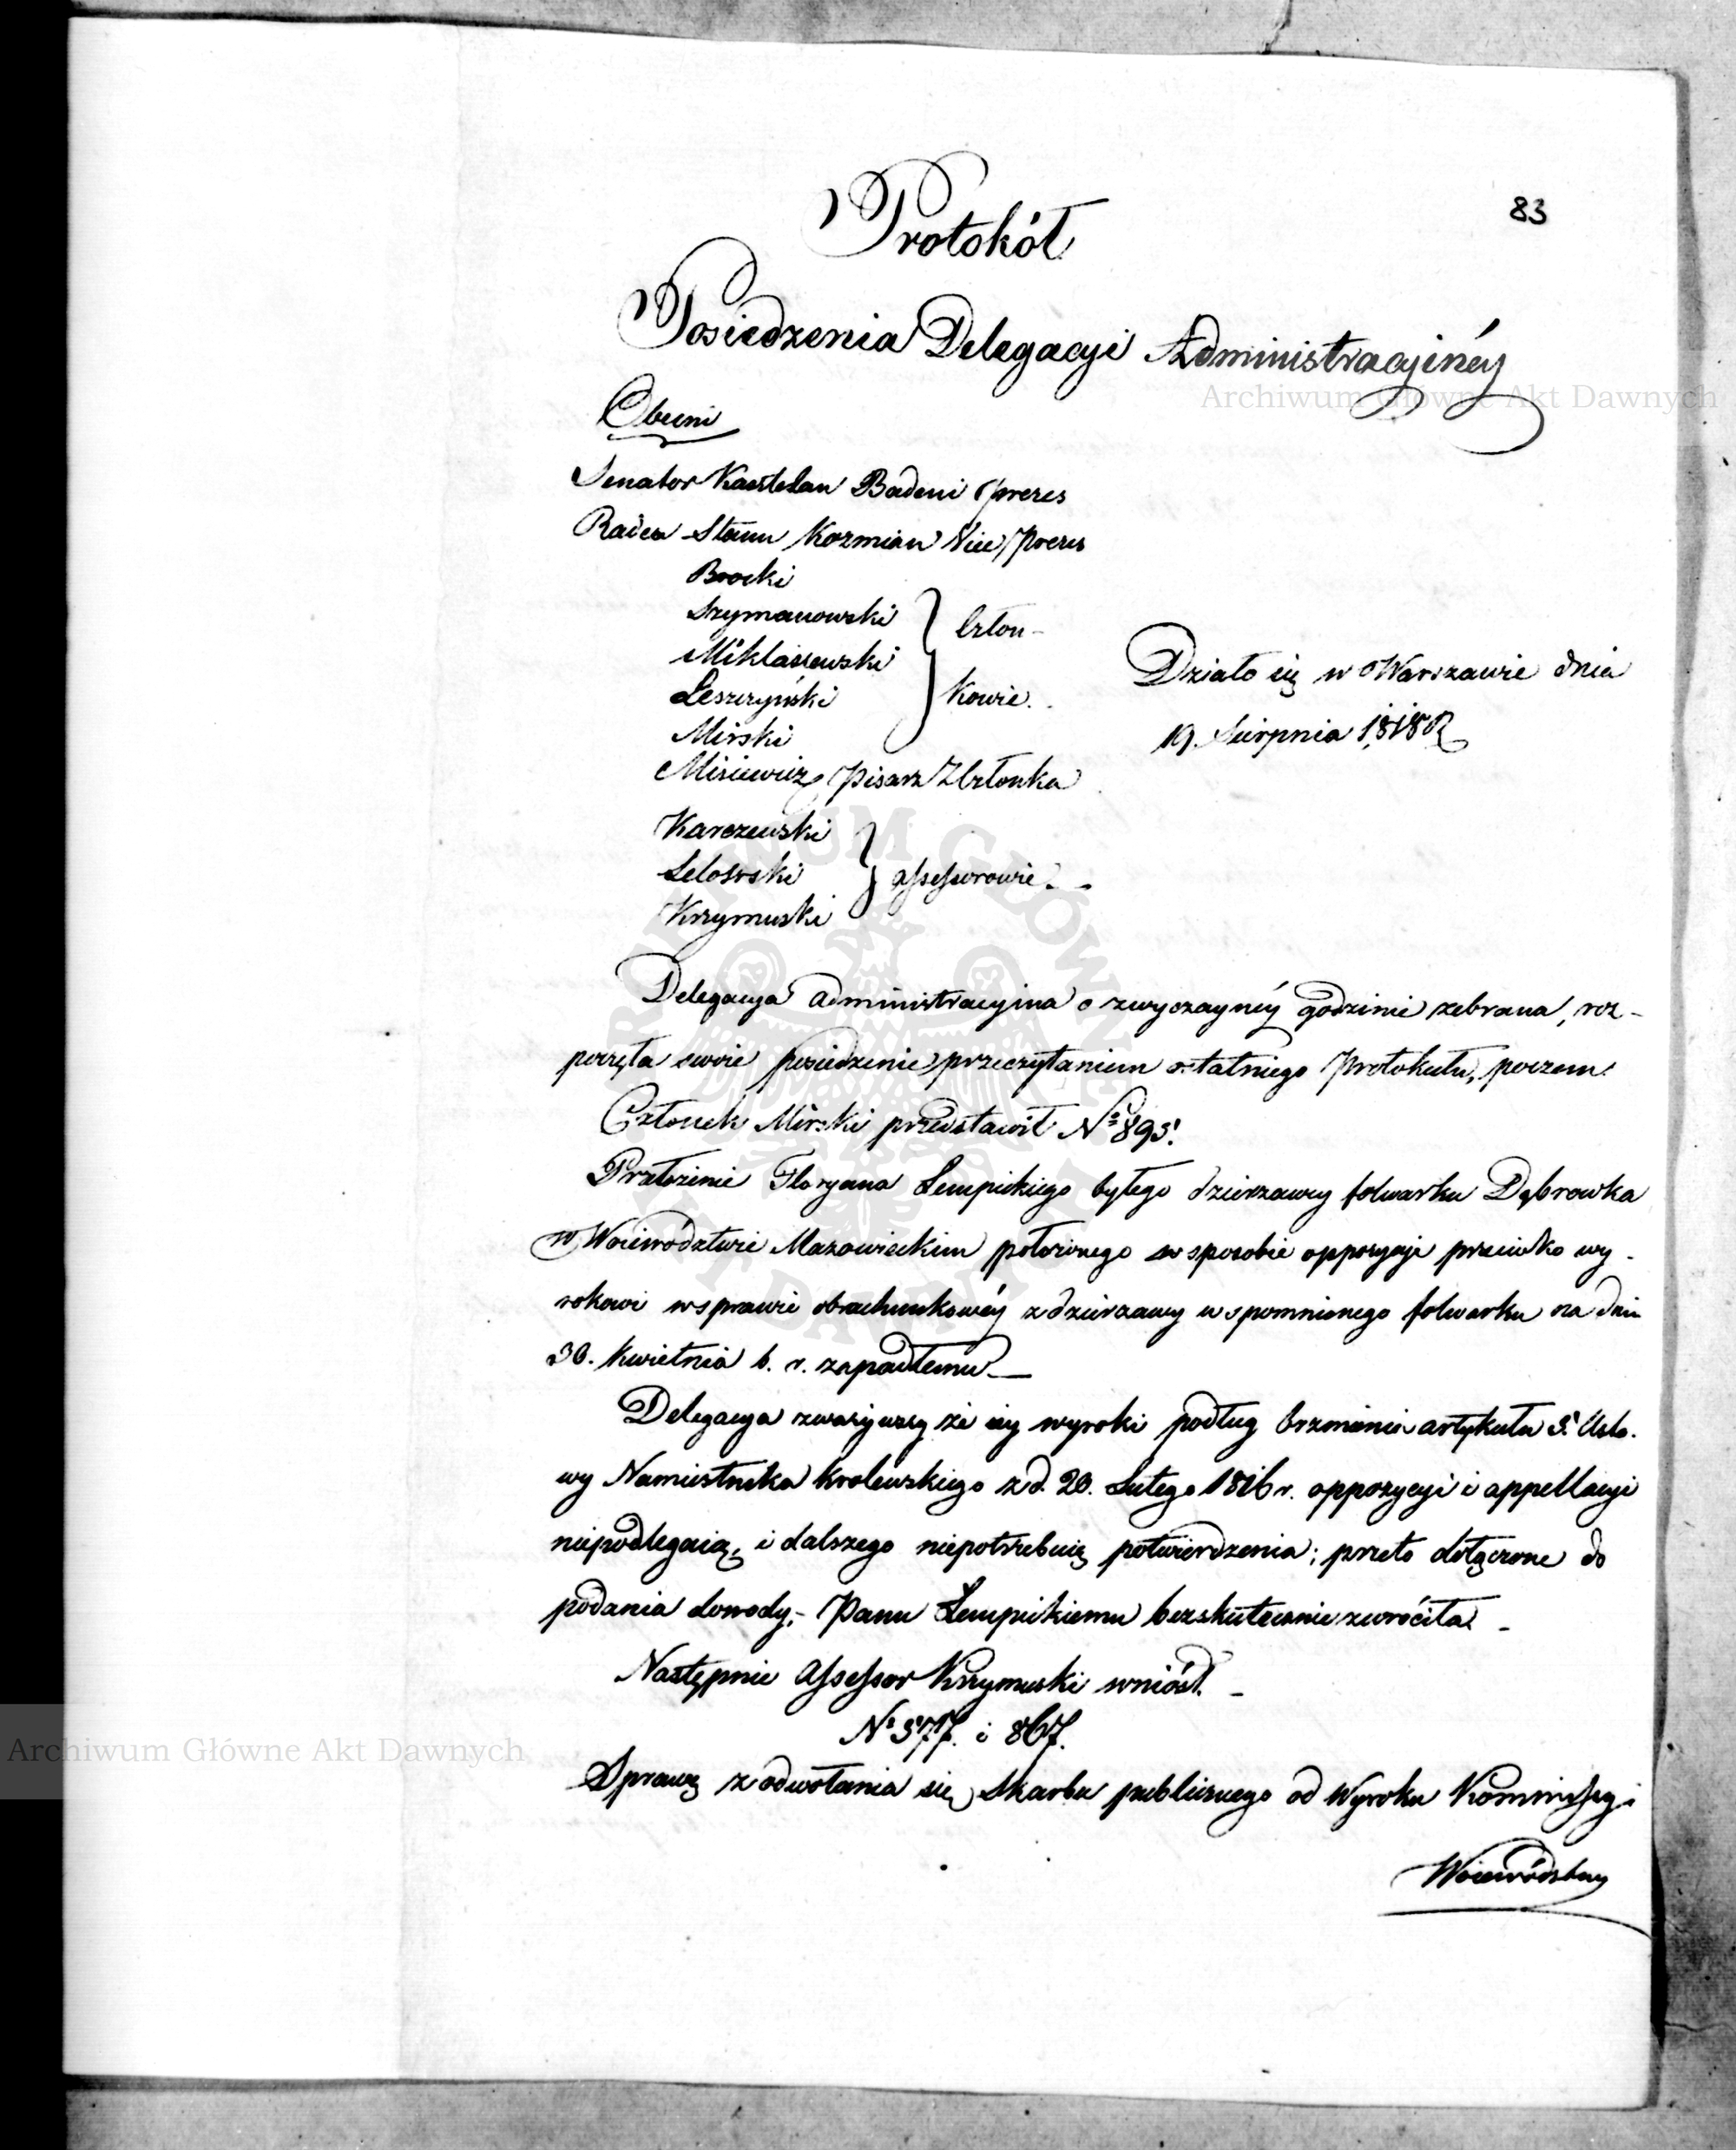 83
Protokół
Posiedzenia Delegacyi Administracyinéy
Obecni
Senator Kasztelan Badeni Prezes
Radca Stanu Kozmian Vice Prezes
Brocki
Szymanowski
Miklaszewski
Leszczyński
Mirski
Człon-
kowie.
Misiewicz Pisarz Z Członka
Karczewski
Krzymuski
assessorowie
Działo się w Warszawie dnia
19. Sierpnia 1818 R
Delegacya administracyina o zwyczaynéy godzinie zebrana, roz-
poczęła swoie posiedzenie przeczytaniem ostatniego Protokułu, poczem
Członek Mirski przedstawił Nº 895.
Przełożenie Floryana Łempickiego byłego dzierzawcy folwarku Dąbrowka
w Woiewództwie Mazowieckim położonego w sposobie oppozycyi przeciwko wy-
rokowi w sprawie obrachunkowéy z dzierzawy wspomnionego folwarku na dniu
30. Kwietnia b. r. zapadłemu
Delegacya zważywszy że iey wyroki podług brzmienia artykułu 5. Usta-
wy Namiestnika Krolewskiego z d. 20. Lutego 1816 r. oppozycyi i appellacyi
niepodlegaią, i dalszego niepotrzebuią potwierdzenia; przeto dołączone do
podania dowody, Panu Łempickiemu bezskutecznie zwróciła
Następnie Assessor Krzymuski wniósł.
Nº 577. i 867.
Sprawę z odwołania się Skarbu publicznego od Wyroku Kommissyi
Woiewódzkiey
Archiwum Główne Akt Dawnych
Archiwum Główne Akt Dawnych